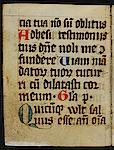 cia tua nō sū oblitus
Adhesi testimonijs
tuis dn̄e noli me ꝯ
fundere Uiam mā
datoꝝ tuoꝝ cucur
ri cū dilatasti cor
meum Gl̄a p
Quicūqꝫ vult sal
uus esse an̄ oīa